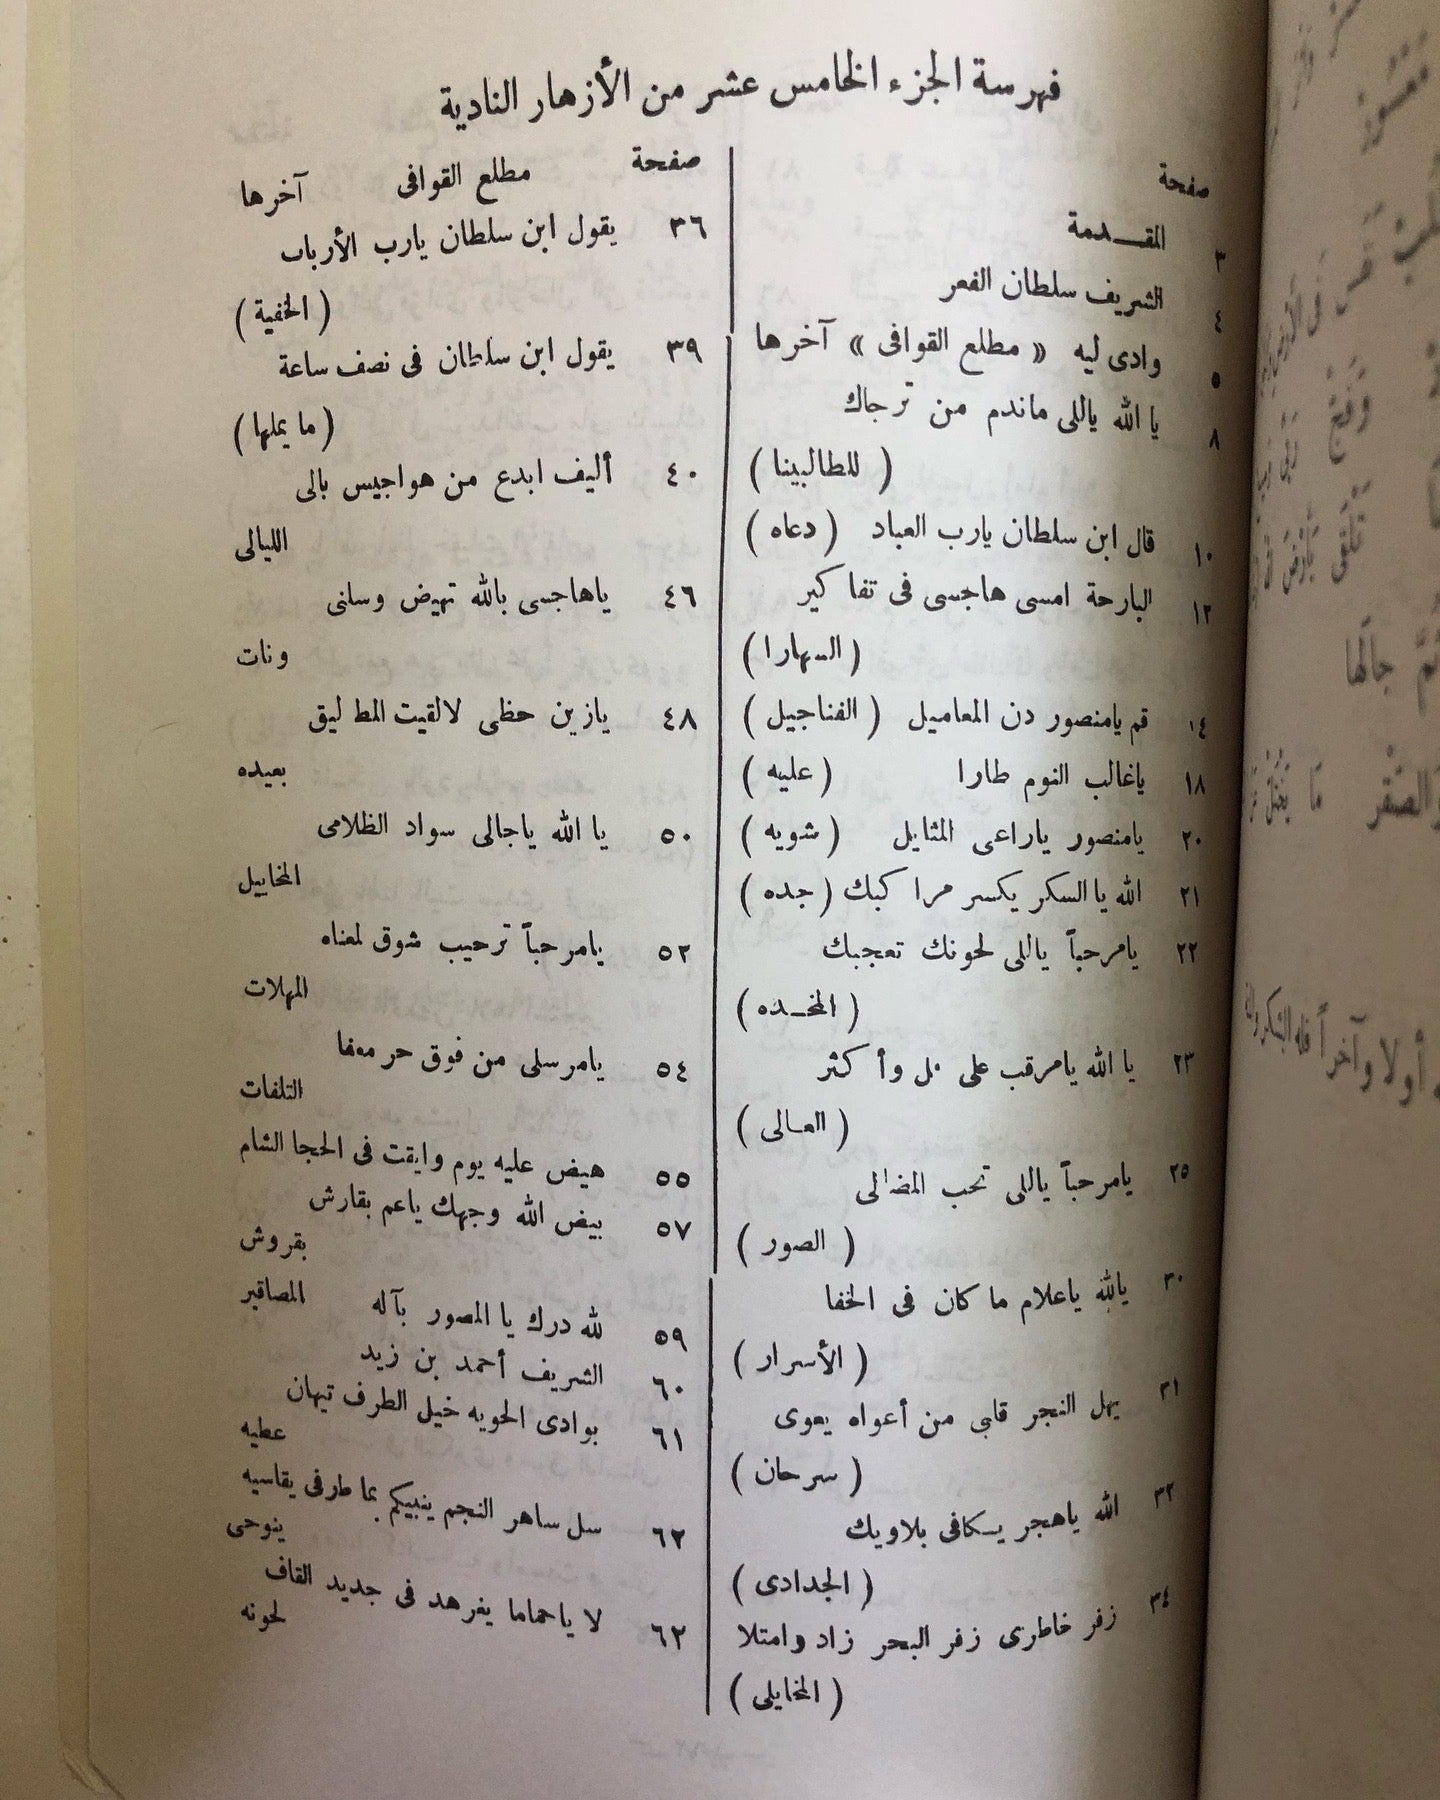 فهرسة الجزء الخامس عشر من الأزهار النادية
صفحة
٣ المقدمة
٤ الشريف سلطان الفعر
٥ وادى ليه « مطلع القوافى » آخرها
٨ يا الله ياللى ماندم من ترجاك
( للطالبينا )
١٠ قال ابن سلطان يارب العباد ( دعاه )
١٢ البارحة امسى هاجسى فى تفاكير
( السهارا )
١٤ قم يامنصور دن المعاميل ( الفناجيل )
١٨ ياغالب النوم طارا ( عليه )
٢٠ يامنصور ياراعى المثايل ( شويه )
٢١ الله يا السكر يكسر مراكبك ( جده )
٢٢ يامرحباً ياللى لحونك تعجبك
( المخده )
٢٣ يا الله يامرقب على وأكثر
( العالى )
٢٥ يامرحباً ياللى تحب
( الصور )
٣٠ يالله ياعلام ما كان فى الخفا
( الأسرار )
٣١ يهل النجر قلبى من أعواه يعوى
( سرحان )
٣٢ الله ياهجر يسكافى بلاويك
( الجدادى )
٣٤ زفر خاطرى زفر البحر زاد وامتلا
( المخايلى )
صفحة مطلع القوافى آخرها
٣٦ يقول ابن سلطان يارب الأرباب
( الخفية )
٣٩ يقول ابن سلطان فى نصف ساعة
( ما يملها )
٤٠ أليف ابدع من هواجيس بالى
الليالى
٤٦ ياهاجسى بالله تهيض وسلنى
ونات
٤٨ يازين حظى لالقيت المطليق
بعيده
٥٠ يا الله ياجالى سواد الظلامى
المخاييل
٥٢ يامرحباً ترحيب شوق لمعناه
المهلات
٥٤ يامرسلى من فوق حر
التلفات
٥٥ هيض عليه يوم وايقت فى الحجا الشام
٥٧ بيض الله وجهك ياعم بقارش
بقروش
٥٩ لله درك يا المصور بآله المصاقير
٦٠ الشريف أحمد بن زيد
٦١ بوادى الحويه خيل الطرف تيهان
عطيه
٦٢ سل ساهر النجم ينبيكم بما طرفى يقاسيه
ينوحى
٦٢ لا ياحماما يغرهد فى جديد القاف
لحونه